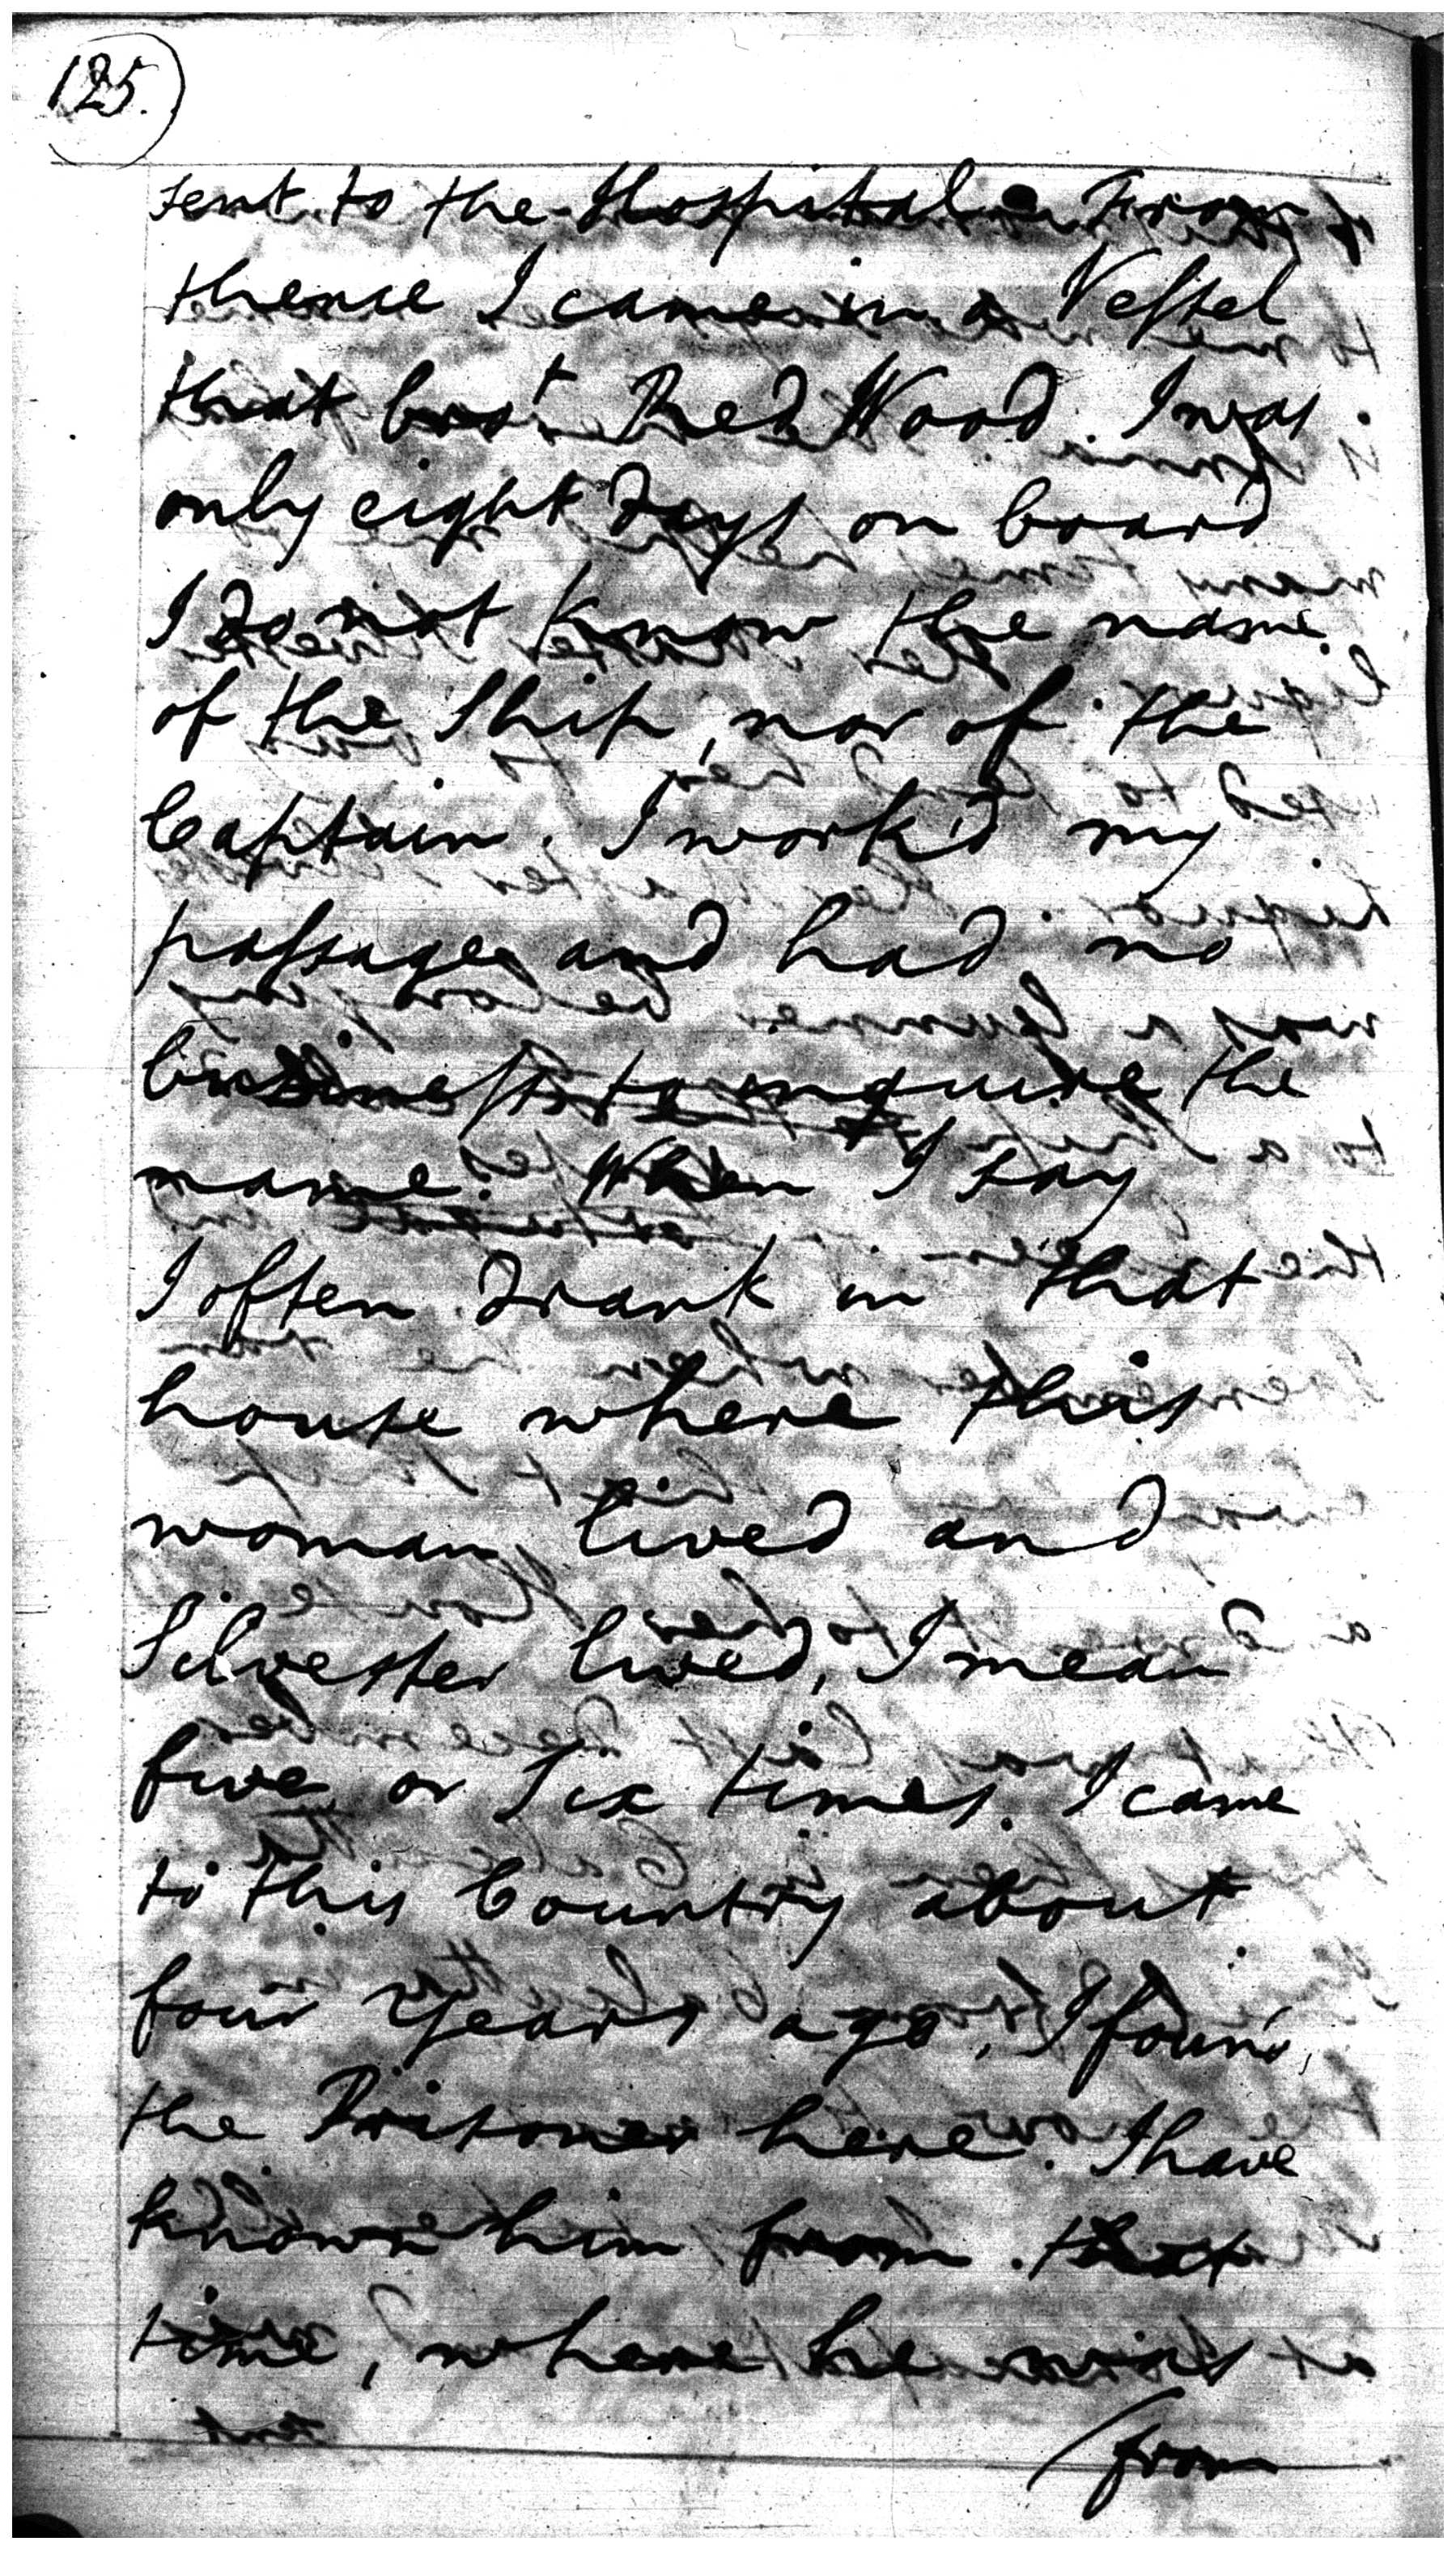 125.
sent to the Hospital. From
thence I came in a Vessel
that bro.t Red Wood. I was
only eight Days on board
I do not know the name
of the Ship, nor of the
Captain. I work'd my
passage and had no
business to inquire the
name. When I say
I often Drank in that
house where this
woman lived and
Silvester lived, I mean
five or Six times. I came
to this Country about
four Years ago, I found,
the Prisoner here. I have
known him from that
time, where he was
from